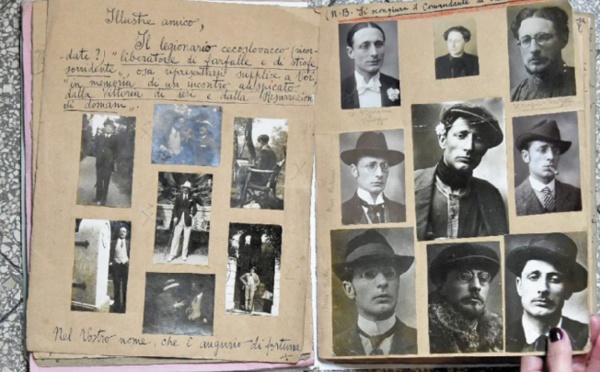 Illustre amico,
Il legionario cecoslovacco (ricor-
date?) "liberatore di farfalle e di strofe
sorridente", osa ripresentarsi supplice a Voi,
"in memoria di un incontro auspicato
dalla vittoria di ieri e dalla Resurrezione
di domani".
Nel Vostro nome, che è augurio di fortuna
(N.B. Si scongiura il Comandante di